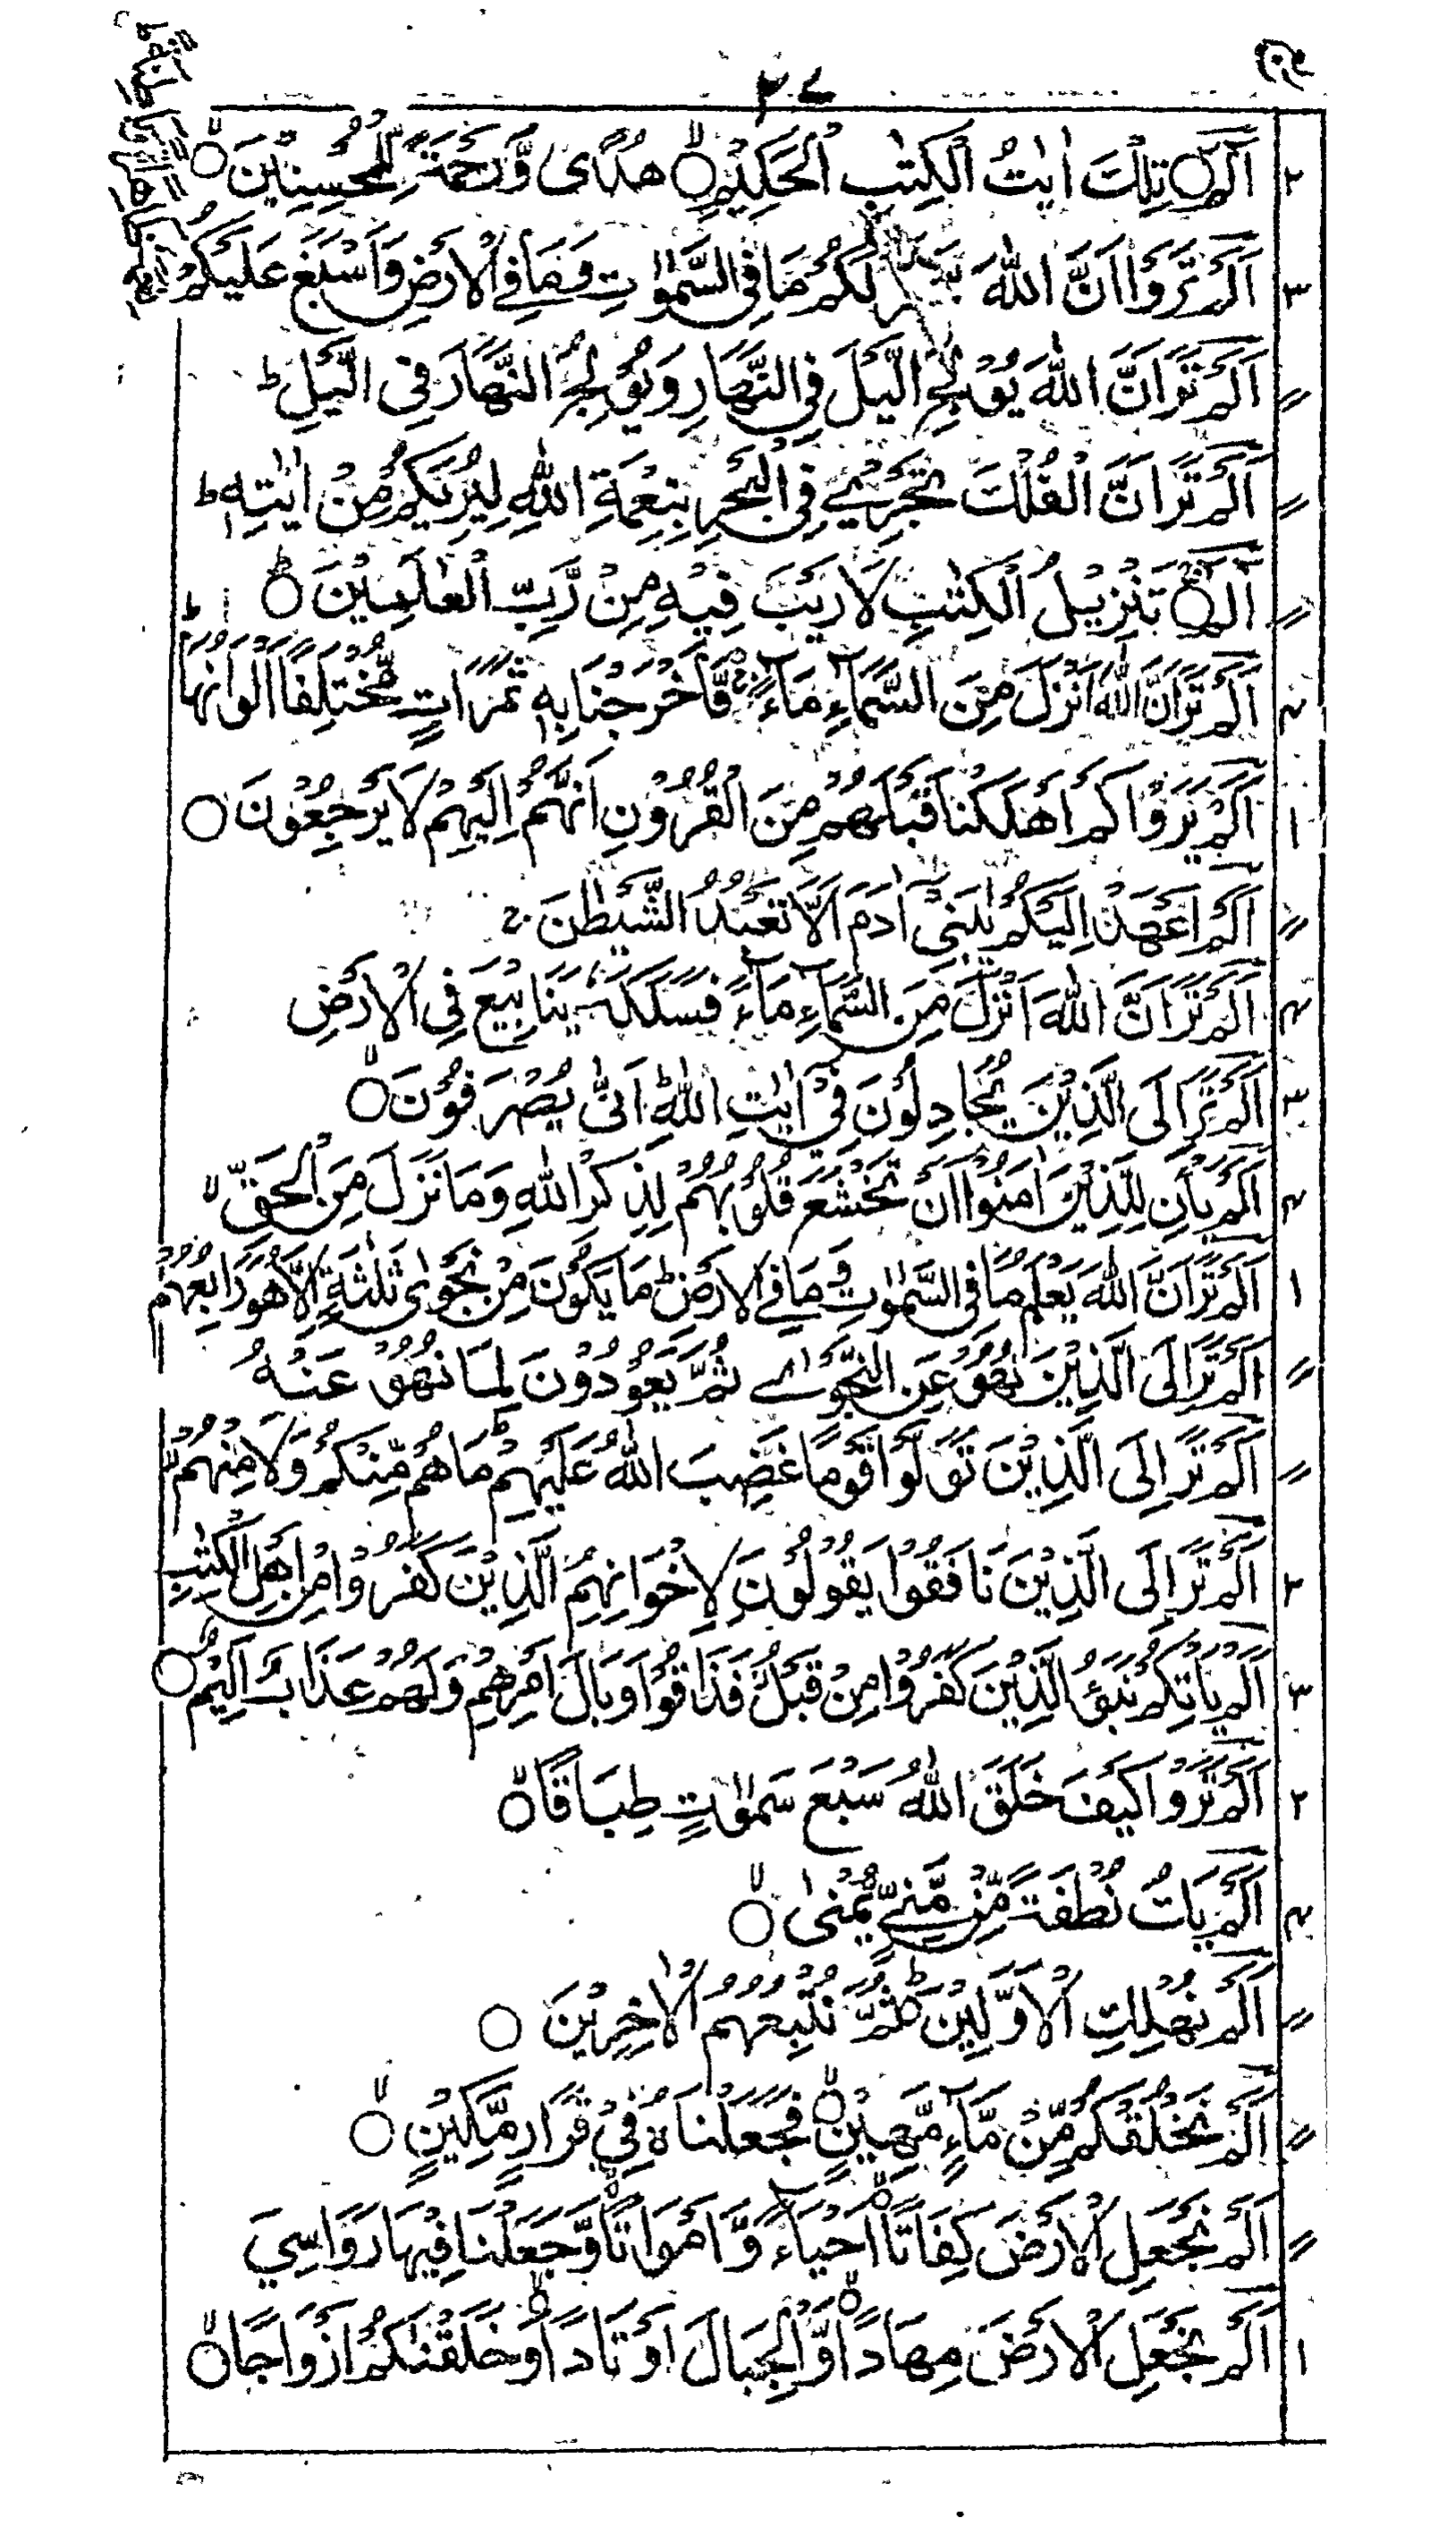 ٢٧
٢ الٓمّٓ ۝ تِلْكَ اٰيٰتُ الْكِتٰبِ الْحَكِيْمِ ۝ۙ هُدًى وَّرَحْمَةً لِّلْمُحْسِنِيْنَ ۝ۙ
٣ اَلَمْ تَرَوْا اَنَّ اللّٰهَ سَخَّرَ لَكُمْ مَا فِى السَّمٰوٰتِ وَمَا فِے الْاَرْضِ وَاَسْبَغَ عَلَيْكُمْ
〃 اَلَمْ تَرَ اَنَّ اللّٰهَ يُوْلِجُ الَّيْلَ فِى النَّهَارِ وَيُوْلِجُ النَّهَارَ فِى الَّيْلِ ؕ
〃 اَلَمْ تَرَ اَنَّ الْفُلْكَ تَجْرِے فِى الْبَحْرِ بِنِعْمَةِ اللّٰهِ لِيُرِيَكُمْ مِنْ اٰيٰتِهٖ ؕ
〃 الٓمّٓ ۝ تَنْزِيْلُ الْكِتٰبِ لَا رَيْبَ فِيْهِ مِنْ رَّبِّ الْعٰلَمِيْنَ ۝ؕ
٤ اَلَمْ تَرَ اَنَّ اللّٰهَ اَنْزَلَ مِنَ السَّمَآءِ مَآءً ۚ فَاَخْرَجْنَا بِهٖ ثَمَرَاتٍ مُّخْتَلِفًا اَلْوَانُهَا ؕ
١ اَلَمْ يَرَوْا كَمْ اَهْلَكْنَا قَبْلَهُمْ مِنَ الْقُرُوْنِ اَنَّهُمْ اِلَيْهِمْ لَا يَرْجِعُوْنَ ۝
〃 اَلَمْ اَعْهَدْ اِلَيْكُمْ يٰبَنِىْٓ اٰدَمَ اَلَّا تَعْبُدُ الشَّيْطٰنَ ۚ
٤ اَلَمْ تَرَ اَنَّ اللّٰهَ اَنْزَلَ مِنَ السَّمَآءِ مَآءً فَسَلَكَهٗ يَنَابِيْعَ فِى الْاَرْضِ
٣ اَلَمْ تَرَ اِلَى الَّذِيْنَ يُجَادِلُوْنَ فِىْٓ اٰيٰتِ اللّٰهِ ؕ اَنّٰى يُصْرَفُوْنَ ۝ۙ
٤ اَلَمْ يَاْنِ لِلَّذِيْنَ اٰمَنُوْا اَنْ تَخْشَعَ قُلُوْبُهُمْ لِذِكْرِ اللّٰهِ وَمَا نَزَلَ مِنَ الْحَقِّ ۙ
١ اَلَمْ تَرَ اَنَّ اللّٰهَ يَعْلَمُ مَا فِى السَّمٰوٰتِ وَمَا فِے الْاَرْضِ ؕ مَا يَكُوْنُ مِنْ نَجْوٰى ثَلٰثَةٍ اِلَّا هُوَ رَابِعُهُمْ
〃 اَلَمْ تَرَ اِلَى الَّذِيْنَ نُهُوْ عَنِ النَّجْوٰے ثُمَّ يَعُوْدُوْنَ لِمَا نُهُوْ عَنْهُ
〃 اَلَمْ تَرَ اِلَى الَّذِيْنَ تَوَلَّوْا قَوْمًا غَضِبَ اللّٰهُ عَلَيْهِمْ ؕ مَا هُمْ مِّنْكُمْ وَلَا مِنْهُمْ ۙ
٢ اَلَمْ تَرَ اِلَى الَّذِيْنَ نَافَقُوْا يَقُوْلُوْنَ لِاِخْوَانِهِمُ الَّذِيْنَ كَفَرُوْا مِنْ اَهْلِ الْكِتٰبِ
٣ اَلَمْ يَاْتِكُمْ نَبَؤُ الَّذِيْنَ كَفَرُوْا مِنْ قَبْلُ فَذَاقُوْا وَبَالَ اَمْرِهِمْ وَلَهُمْ عَذَابٌ اَلِيْمٌ ۝
٢ اَلَمْ تَرَوْا كَيْفَ خَلَقَ اللّٰهُ سَبْعَ سَمٰوٰتٍ طِبَاقًا ۝ۙ
٤ اَلَمْ يَكُ نُطْفَةً مِّنْ مَّنِىٍّ يُّمْنٰى ۝ۙ
〃 اَلَمْ نُهْلِكِ الْاَوَّلِيْنَ ۝ؕ ثُمَّ نُتْبِعُهُمُ الْاٰخِرِيْنَ ۝
〃 اَلَمْ نَخْلُقْكُمْ مِّنْ مَّآءٍ مَّهِيْنٍ ۝ۙ فَجَعَلْنَاهُ فِىْ قَرَارٍ مَّكِيْنٍ ۝ۙ
〃 اَلَمْ نَجْعَلِ الْاَرْضَ كِفَاتًا ۝ۙ اَحْيَآءً وَّاَمْوَاتًا ۝ۙ وَّجَعَلْنَا فِيْهَا رَوَاسِيَ
١ اَلَمْ نَجْعَلِ الْاَرْضَ مِهَادًا ۝ۙ وَّالْجِبَالَ اَوْتَادًا ۝ۙ وَّخَلَقْنٰكُمْ اَزْوَاجًا ۝ۙ